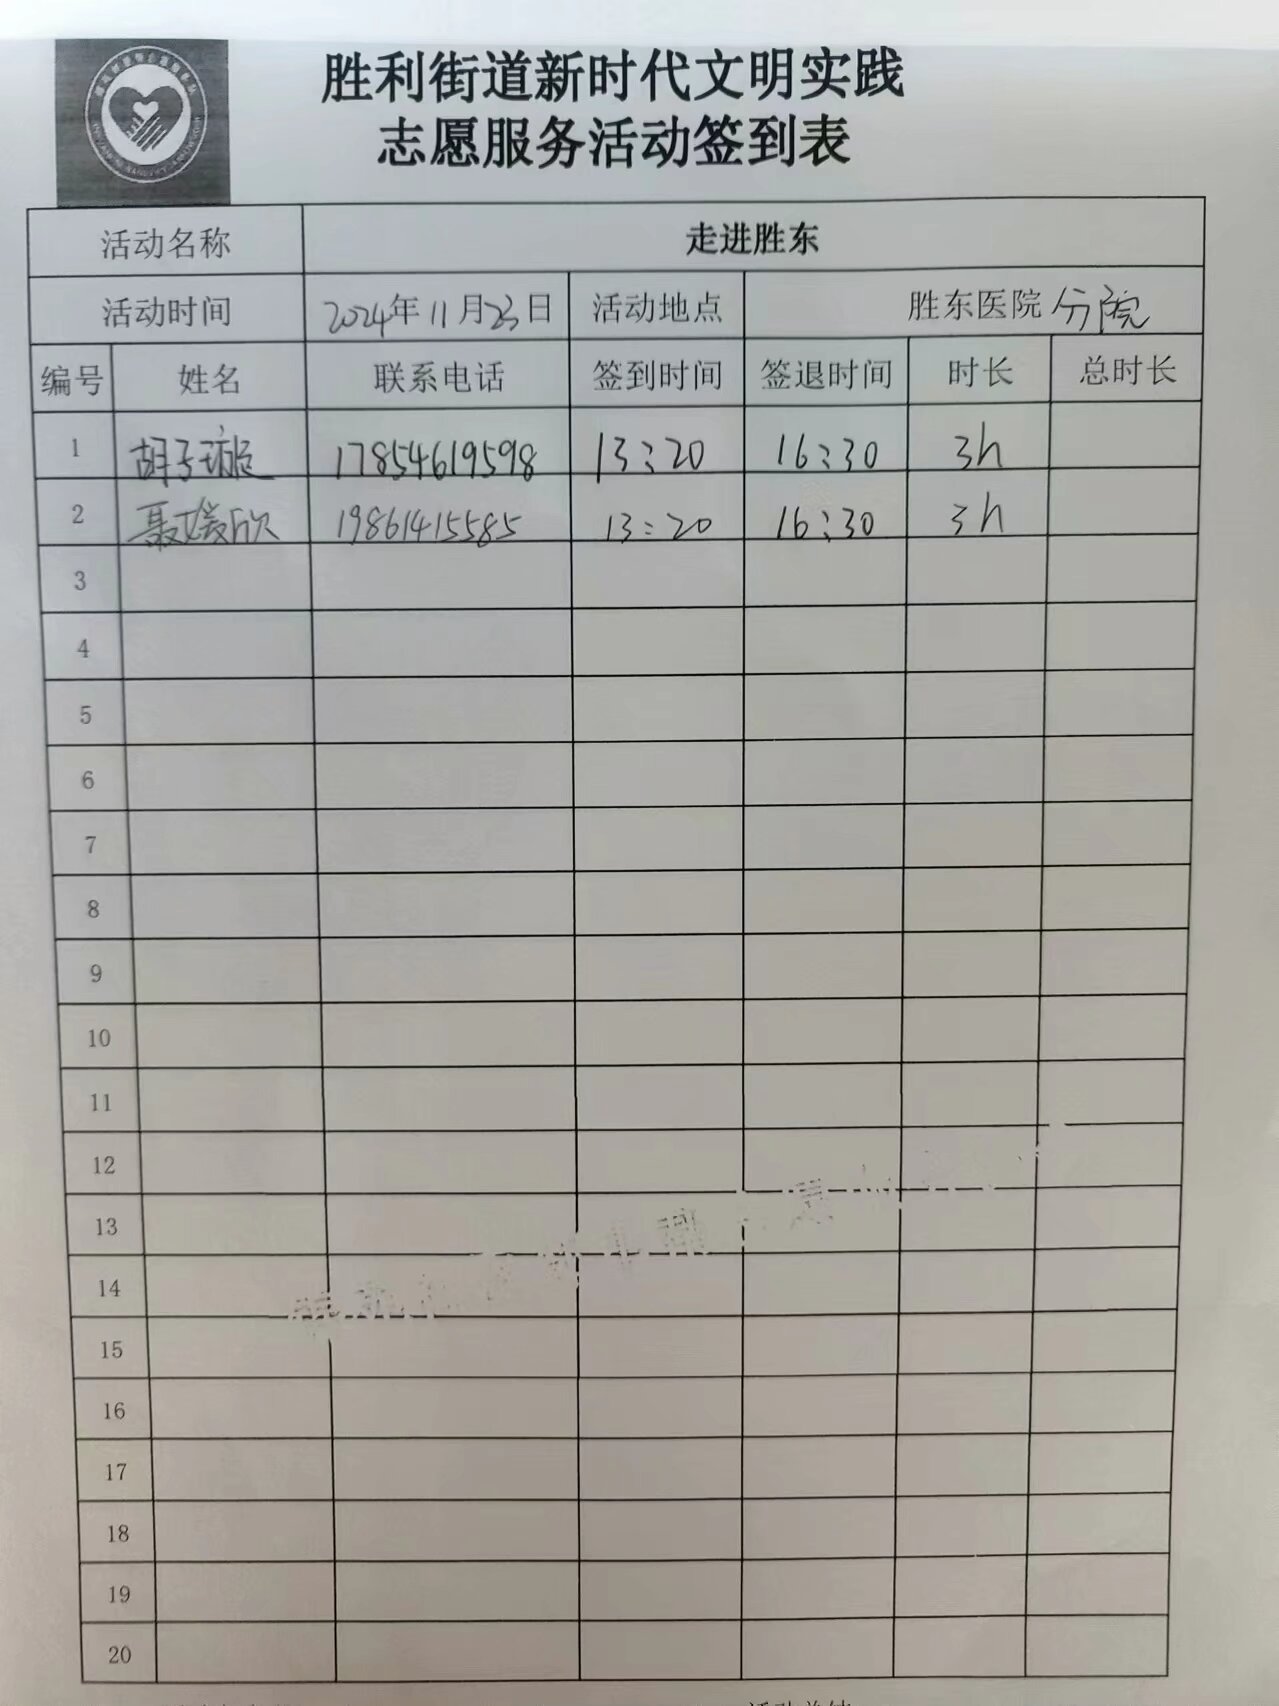 胜利街道新时代文明实践
志愿服务活动签到表
活动名称 走进胜东
活动时间 2024年11月23日 活动地点 胜东医院分院
编号 姓名 联系电话 签到时间 签退时间 时长 总时长
1 胡子璇 17854619598 13:20 16:30 3h
2 聂媛欣 19861415585 13:20 16:30 3h
3
4
5
6
7
8
9
10
11
12
13
14
15
16
17
18
19
20